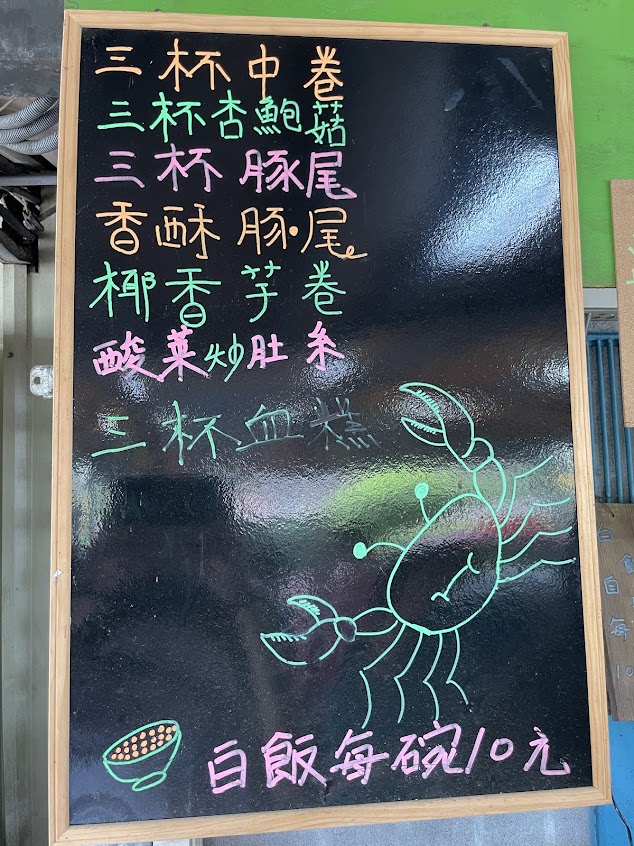 三杯中卷
三杯杏鮑菇
三杯豚尾
香酥豚尾
椰香芋卷
酸菜炒肚糸
三杯血糕
白飯每碗10元